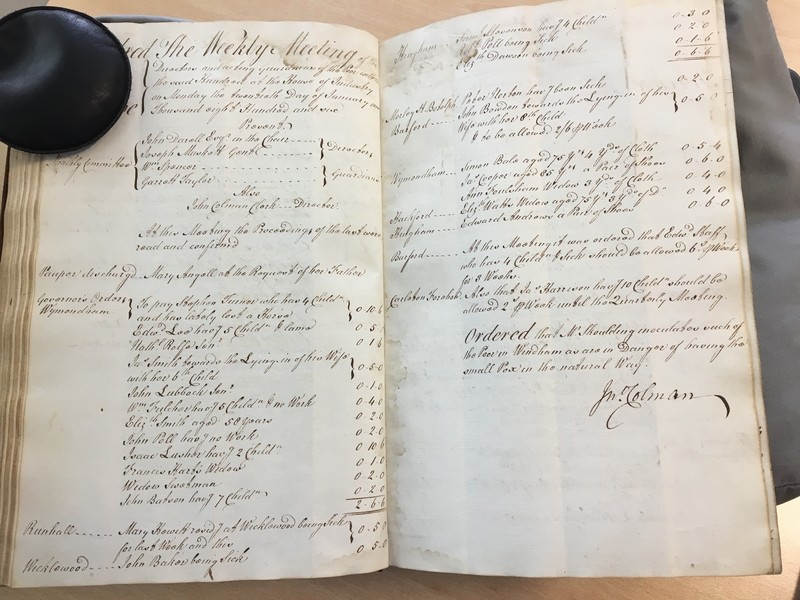 The Weekly Meeting of the
Directors and acting Guardians of the Poor within
the said Hundred at the House of Industry
on Monday the twentieth Day of January one
Thousand eight Hundred and six
Present
John Darell Esqr. in the Chair
Joseph Muskett Gent.
Directors
Weekly Committee
Wm. Spencer
Garrett Taylor
Guardians
Also
John Colman Clerk Director
At this Meeting the Proceedings of the last were
read and confirmed
Pauper discharg'd Mary Angell at the Request of her Father
Governor's Orders
Wymondham
To pay Stephen Turner who has 4 Childn.
and has lately lost a Horse 0-10-6
Edwd. Loo havg 5 Childn. & lame 0-5-0
Nathl. Rolfe Senr. 0-1-6
Jas. Smith towards the Lying-in of his Wife
with her 6th Child 0-5-0
John Lubbock Senr. 0-1-0
Wm. Fulcher havg 5 Childn. & no Work 0-4-0
Elizth. Smith aged 58 Years 0-2-0
John Poll havg no Work 0-2-0
Isaac Lusher havg 2 Childn. 0-10-6
Frances Harts Widow 0-1-0
Widow Swotman 0-2-0
John Batson havg 7 Childn. 0-2-0
2-6-6
Runhall Mary Howitt residg at Wicklewood being Sick
for last Week and this 0-5-0
Wicklewood John Baker being Sick 0-5-0
Hingham Stevenson havg 4 Childn. 0-3-0
Poll being Sick 0-2-0
Elizth. Dawson being Sick 0-1-6
0-6-6
Morley St. Botolph Peter Norton has been Sick 0-2-0
Barford John Bowden towards the Lying-in of his
Wife with her 8th Child 0-5-0
& to be allowed 2/6 p Week
Wymondham Simon Bale aged 75 Yrs. 4 Yds. of Cloth 0-5-4
Jas. Cooper aged 85 Yrs. a Pair of Shoes 0-6-0
Ann Foulsham Widow 3 Yds. of Cloth 0-4-0
Hackford Elizth. Watts Widow aged 75 Yrs. 3 Yds. of Do. 0-4-0
Hingham Edward Andrews a Pair of Shoes 0-6-0
Barford At this Meeting it was ordered that Edwd. Staff
who has 4 Childn. & Sick should be allowed 6s. p Week
for 3 Weeks.
Carleton Forehoe Also that Jas. Harrison havg 10 Childn. should be
allowed 2s. p Week until the Quarterly Meeting.
Ordered that Mr. Skoulding inoculates such of
the Poor in Windham as are in Danger of having the
small Pox in the natural Way.
Jno. Colman